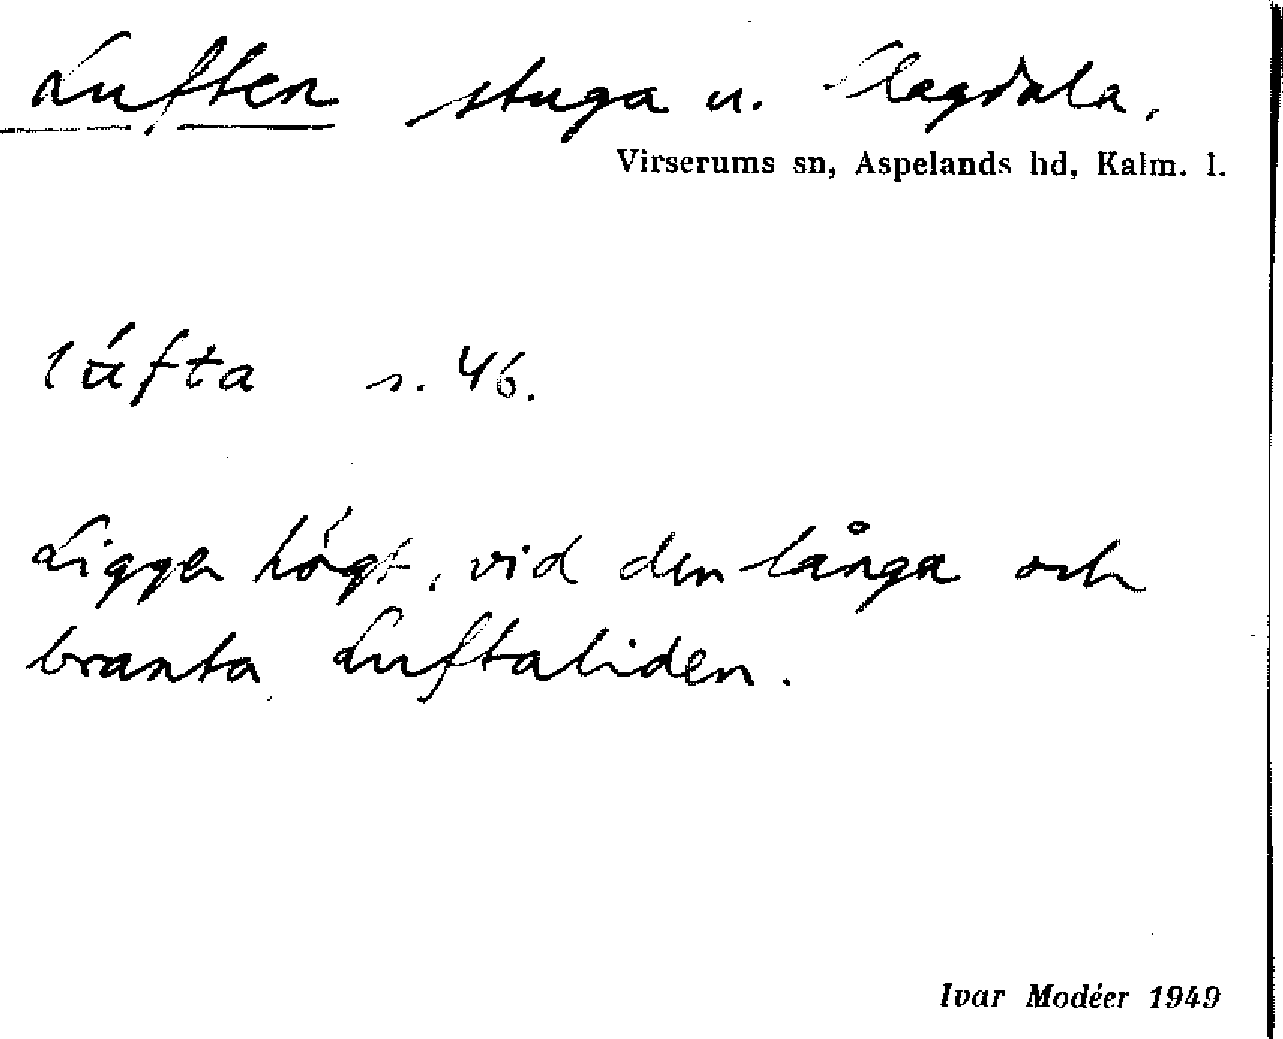 Luften stuga u. Slagdala.
Virserums sn, Aspelands hd, Kalm. l.
lúfta s. 46.
Ligger högt, vid den långa och
branta Luftaliden.
Ivar Modéer 1949